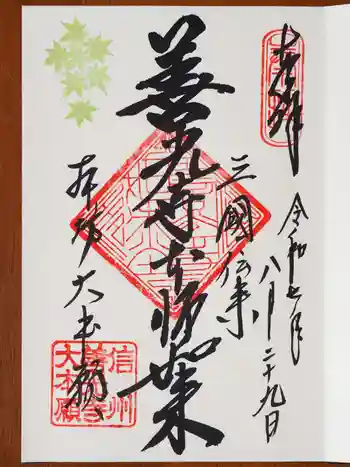 奉拝
令和七年
八月二十九日
三國伝来
善光寺本師如来
本坊 大本願
信州
善光寺
大本願